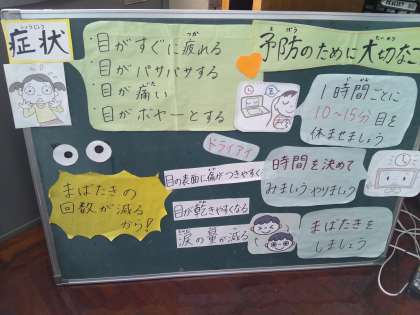 しょうじょう
症状
・目がすぐに疲れる
つか
・目がパサパサする
・目が痛い
・目がボヤーとする
よぼう
予防のために大切なこ
1時間ごとに
10～15分目を
休ませましょう
ドライアイ
目の表面に傷がつきやすく
目が乾きやすくなる
涙の量が減る
まばたきの
回数が減る
から!
時間を決めて
みましょうやりましょう
まばたきを
しましょう